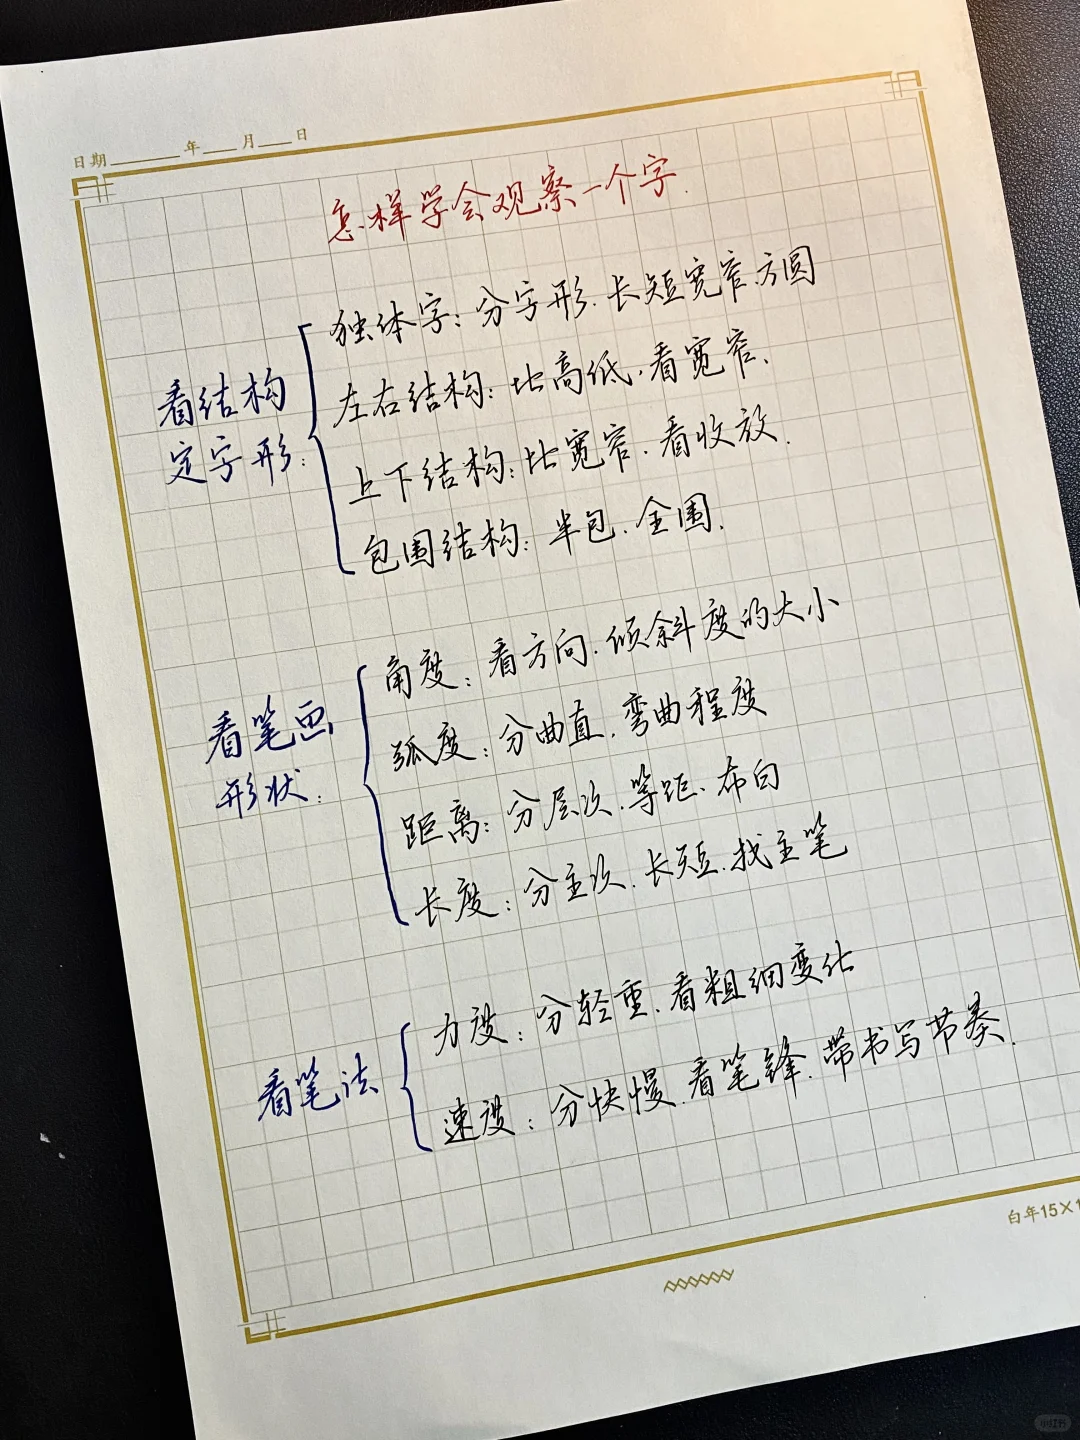 日期____年__月__日
怎样学会观察一个字.
看结构
定字形:
独体字: 分字形. 长短宽窄.方圆
左右结构: 比高低.看宽窄.
上下结构: 比宽窄.看收放.
包围结构: 半包.全围.
看笔画
形状:
角度: 看方向.倾斜度的大小
弧度: 分曲直.弯曲程度
距离: 分层次.等距.布白
长度: 分主次.长短.找主笔
看笔法
力度: 分轻重.看粗细变化
速度: 分快慢.看笔锋.带书写节奏.
白年15×1
小红书